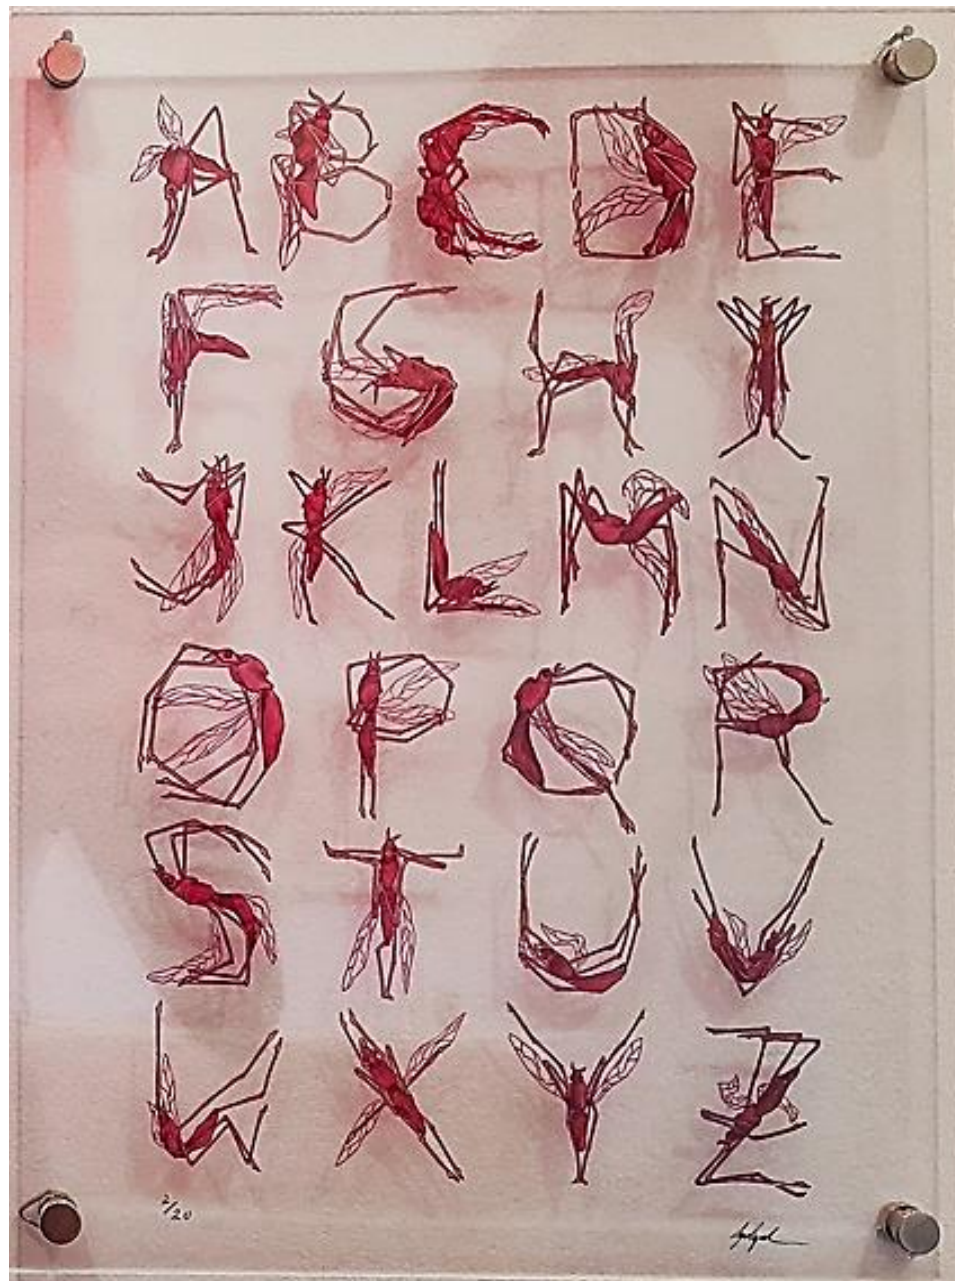 A B C D E
F G H I
J K L M N
O P Q R
S T U V
W X Y Z
2/20